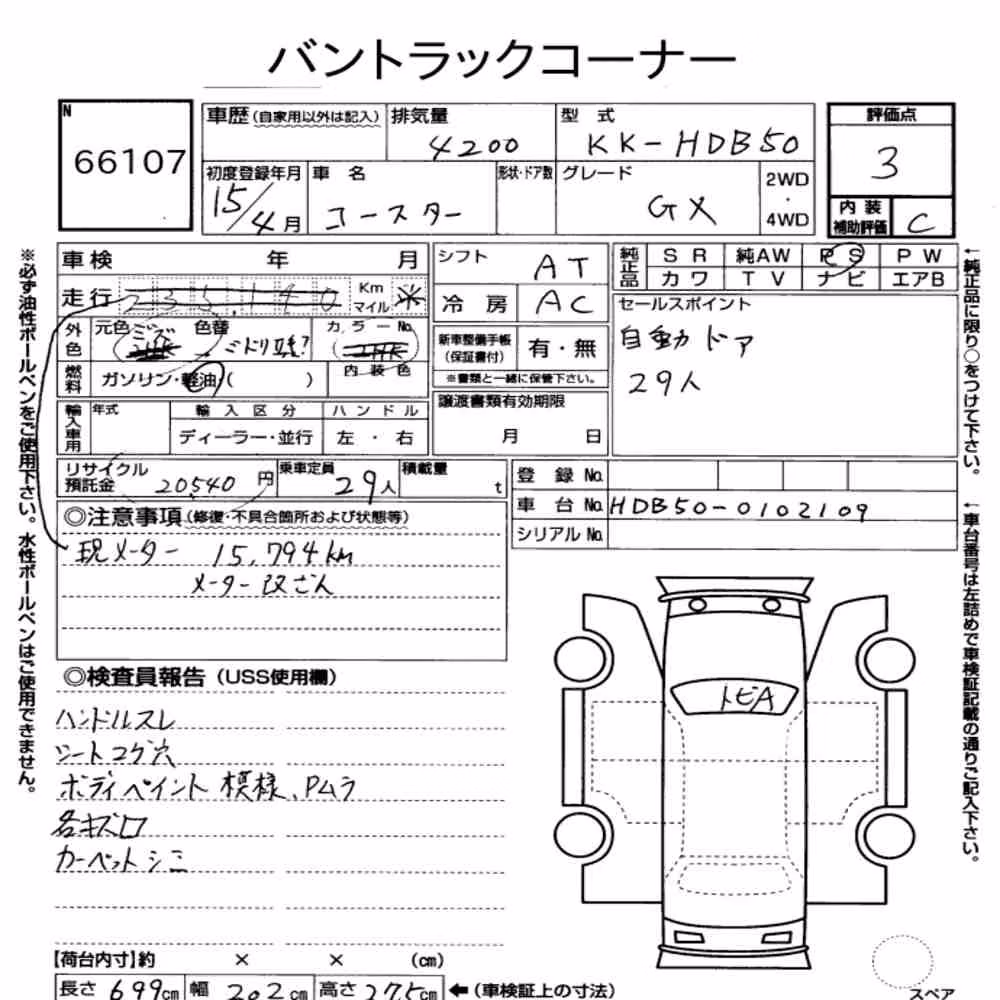 バントラックコーナー
N
66107
車歴(自家用以外は記入)
排気量
4200
型式
KK-HDB50
評価点
3
初度登録年月
15/4月
車名
コースター
形状・ドア数
グレード
GX
2WD
・
4WD
内装
補助評価
C
車検 年 月
走行 235,140 Km
マイル ※
外色
元色
色替
カラーNo.
内装色
燃料
ガソリン・軽油・( )
輸入車用
年式
輸入区分
ハンドル
ディーラー・並行
左・右
シフト
AT
冷房
AC
新車整備手帳
(保証書付)
有・無
※書類と一緒に保管下さい。
譲渡書類有効期限
月 日
純正品
SR 純AW PS PW
カワ TV ナビ エアB
セールスポイント
自動ドア
29人
リサイクル
預託金
20540円
乗車定員
29人
積載量
t
登録No.
車台No.
HDB50-0102109
シリアルNo.
◎注意事項(修復・不具合箇所および状態等)
現メーター 15,794km
メーター改ざん
◎検査員報告(USS使用欄)
ハンドルスレ
シートコゲ穴
ボディペイント模様、Pムラ
各キズ凹
カーペットシミ
トビA
【荷台内寸】約 × × (cm)
長さ 699cm
幅 202cm
高さ 275cm
←(車検証上の寸法)
スペア
※必ず油性ボールペンをご使用下さい。水性ボールペンはご使用できません。
←純正品に限り○をつけて下さい。
←車台番号は左詰めで車検証記載の通りご記入下さい。